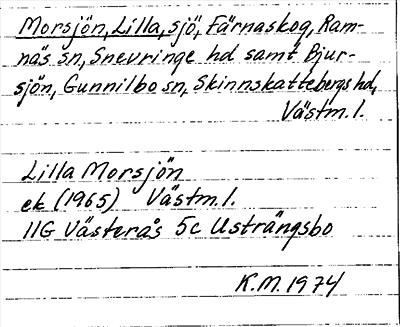 Morsjön, Lilla, sjö, Färnaskog, Ram-
näs sn, Snevringe hd samt Bjur-
sjön, Gunnilbo sn, Skinnskattebergs hd,
Västm. l.
Lilla Morsjön
ek (1965) Västm. l.
11G Västerås 5c Usträngsbo
K.M. 1974